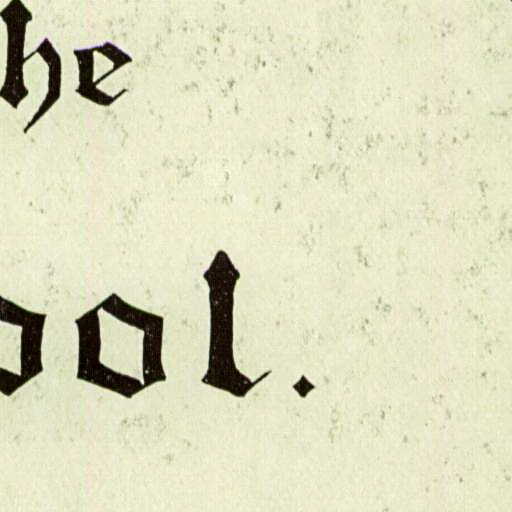 he
ool.